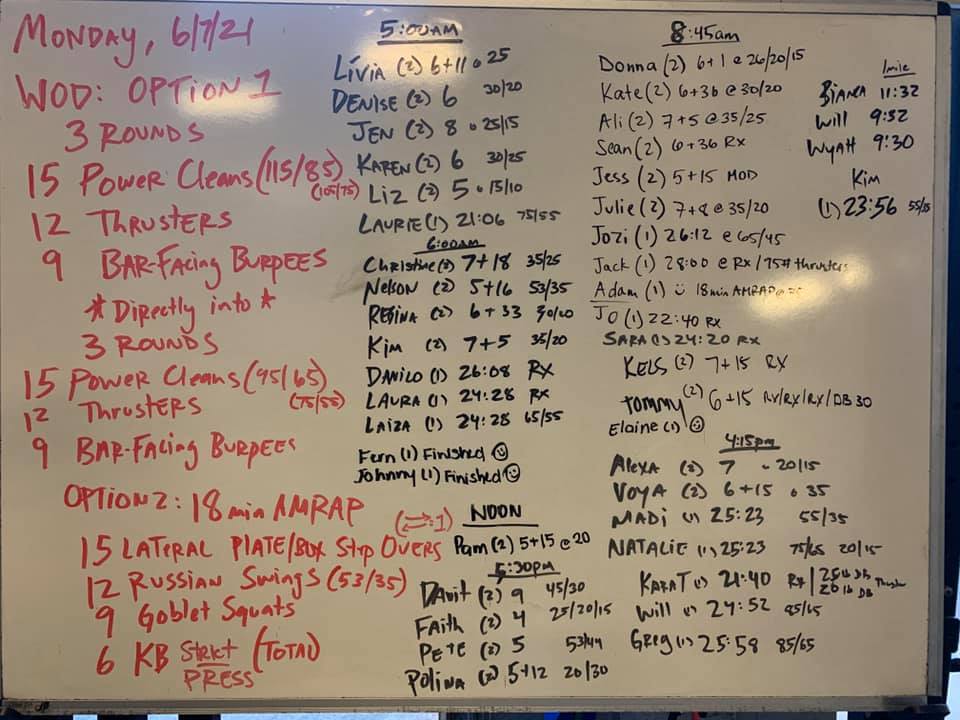 MONDAY, 6/7/21
WOD: OPTION 1
3 ROUNDS
15 POWER CLEANS (115/85)
(105/75)
12 THRUSTERS
9 BAR-FACING BURPEES
* Directly into *
3 ROUNDS
15 POWER CLEANS (95/65)
(75/55)
12 THRUSTERS
9 BAR-FACING BURPEES
OPTION 2: 18 min AMRAP
15 LATERAL PLATE/BOX STEP OVERS (⇄=1)
12 RUSSIAN SWINGS (53/35)
9 GOBLET SQUATS
6 KB STRICT PRESS (TOTAL)
5:00AM
LIVIA (2) 6+11 @ 25
DENISE (2) 6 30/20
JEN (2) 8 @ 25/15
KAREN (2) 6 30/25
LIZ (2) 5 @ 15/10
LAURIE (1) 21:06 75/55
6:00AM
Christine (2) 7+18 35/25
NELSON (2) 5+16 53/35
REGINA (2) 6+33
KIM (2) 7+5 35/20
DANILO (1) 26:08 RX
LAURA (1) 24:28 RX
LAIZA (1) 24:28 65/55
Fern (1) Finished ☺
Johnny (1) Finished ☺
NOON
Pam (2) 5+15 @ 20
5:30pm
DAVIT (2) 9 45/30
FAITH (2) 4 25/20/15
PETE (2) 5 53/44
POLINA (2) 5+12 20/30
8:45am
Donna (2) 6+1 @ 26/20/15
Kate (2) 6+36 @ 30/20
Ali (2) 7+5 @ 35/25
Sean (2) 6+36 RX
Jess (2) 5+15 MOD
Julie (2) 7+8 @ 35/20
Jozi (1) 26:12 @ 65/45
Jack (1) 28:00 @ RX/75# thrusters
Adam (1) ☺ 18min AMRAP @
JO (1) 22:40 RX
SARA (1) 24:20 RX
KELS (2) 7+15 RX
Tommy (2) 6+15 RX/RX/RX/DB 30
Elaine (1) ☺
4:15pm
ALEXA (2) 7 @ 20/15
VOYA (2) 6+15 @ 35
MADI (1) 25:23 55/35
NATALIE (1) 25:23 75/65 20/15
KARA T (1) 21:40 RX/25lb DB
20 lb DB Thruster
Will (1) 24:52 85/65
GREG (1) 25:58 85/65
1 mile
BIANCA 11:32
Will 9:32
WYATT 9:30
KIM
(1) 23:56 55/35